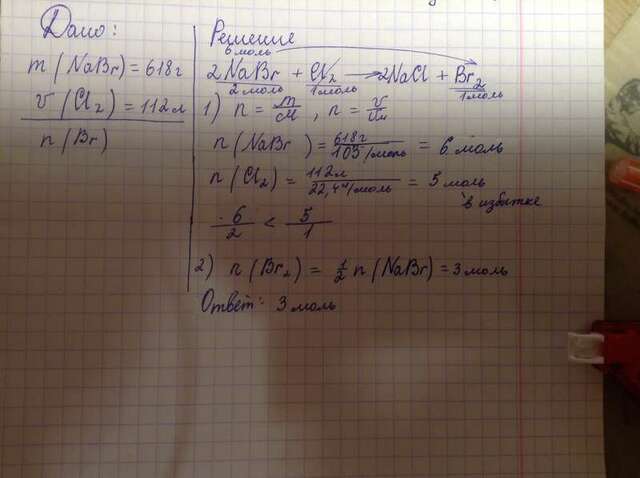 Дано:
m(NaBr) = 618г
v(Cl2) = 112л
n(Br)
Решение
6 моль
2NaBr + Cl2 → 2NaCl + Br2
2 моль 1 моль 1 моль
1) n = m/M, n = v/Vм
n(NaBr) = 618г/103г/моль = 6 моль
n(Cl2) = 112л/22,4л/моль = 5 моль
в избытке
6/2 < 5/1
2) n(Br2) = 1/2 n(NaBr) = 3 моль
Ответ: 3 моль